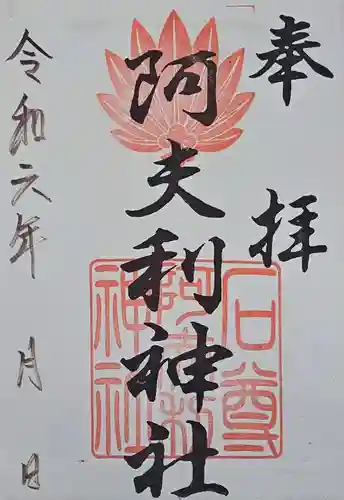 奉拝
阿夫利神社
令和六年 月 日
石尊
阿夫利
神社